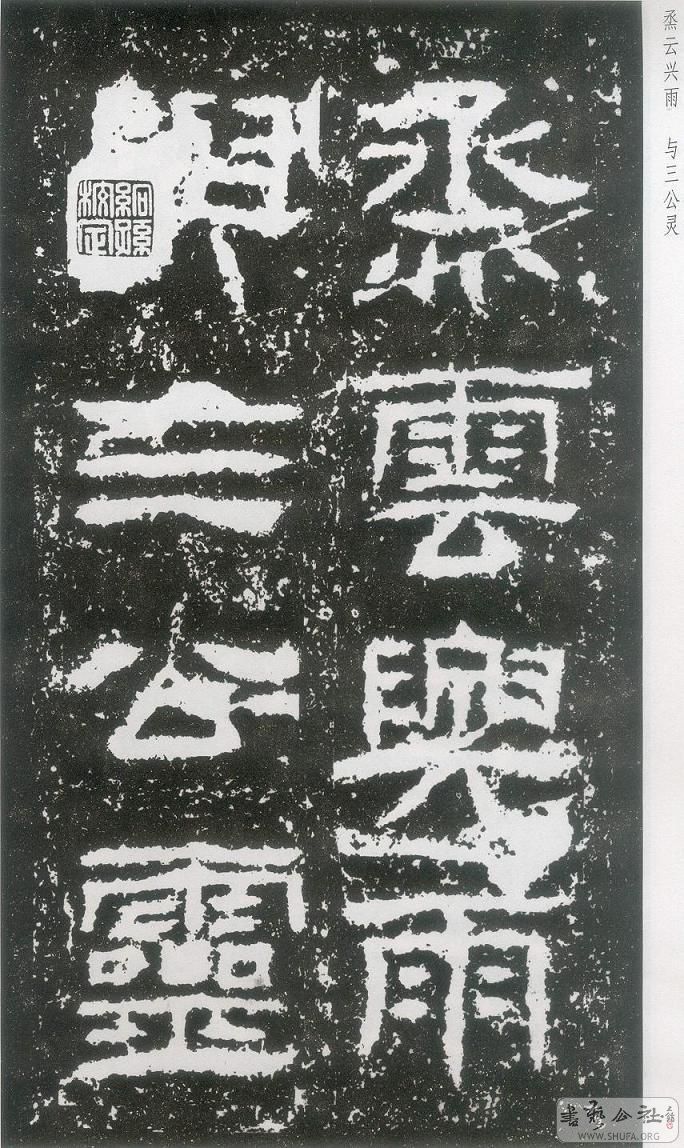 烝云兴雨 与三公灵
烝雲興雨
與三公靈
書藝公社
WWW.SHUFA.ORG